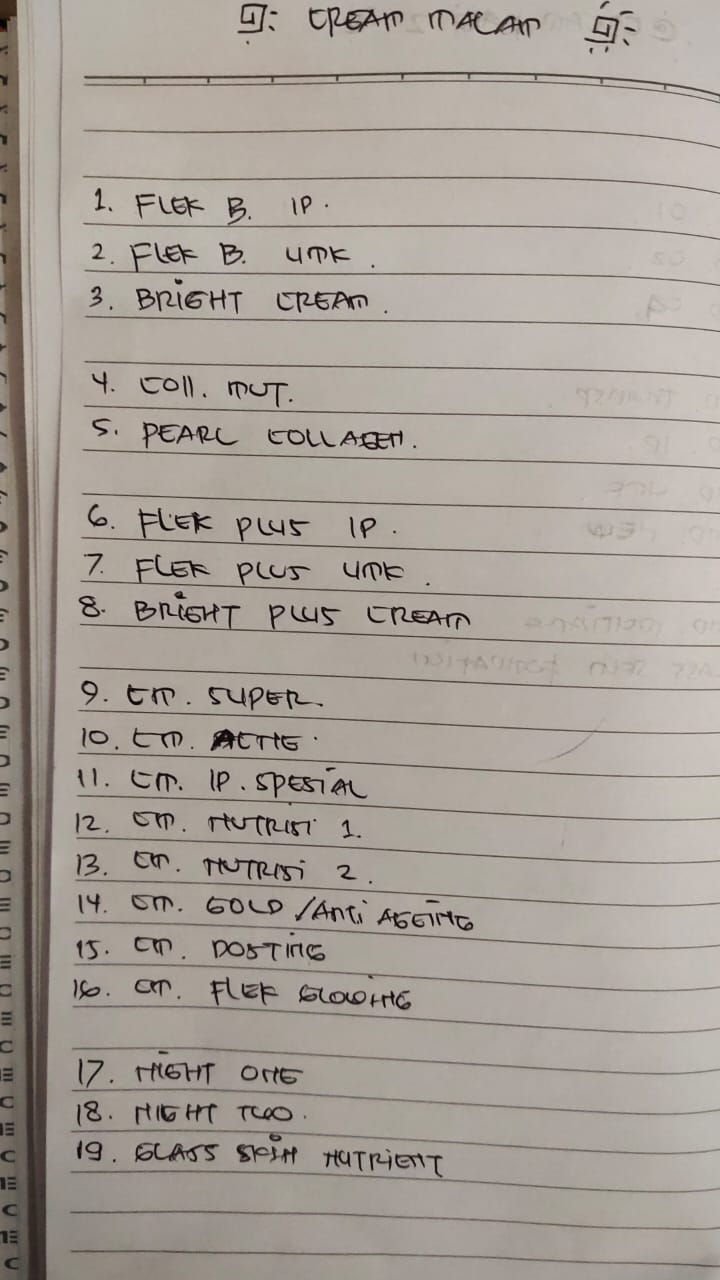 CREAM MALAM
1. FLEK B. IP.
2. FLEK B. UMK.
3. BRIGHT CREAM.
4. COll. MUT.
5. PEARL COLLAGEN.
6. FLEK PLUS IP.
7. FLEK PLUS UMK.
8. BRIGHT PLUS CREAM
9. CM. SUPER.
10. CM. ACNE.
11. CM. IP. SPESIAL
12. CM. NUTRISI 1.
13. CM. NUTRISI 2.
14. CM. GOLD / ANTI AGEING
15. CM. DOSTING
16. CM. FLEK GLOWING
17. NIGHT ONE
18. NIGHT TWO.
19. GLASS SKIN NUTRIENT